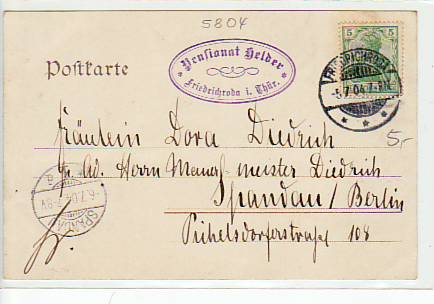 5804
5
Pensionat Helder
Friedrichroda i. Thür.
Postkarte
FRIEDRICHRODA
-5.7.04.7-8N.
5,-
Fräulein Dora Diedrich
pr. Ad. Herrn meister Diedrich
Spandau / Berlin
Pichelsdorferstraße 108
SPANDAU
6.7.04.7-8V